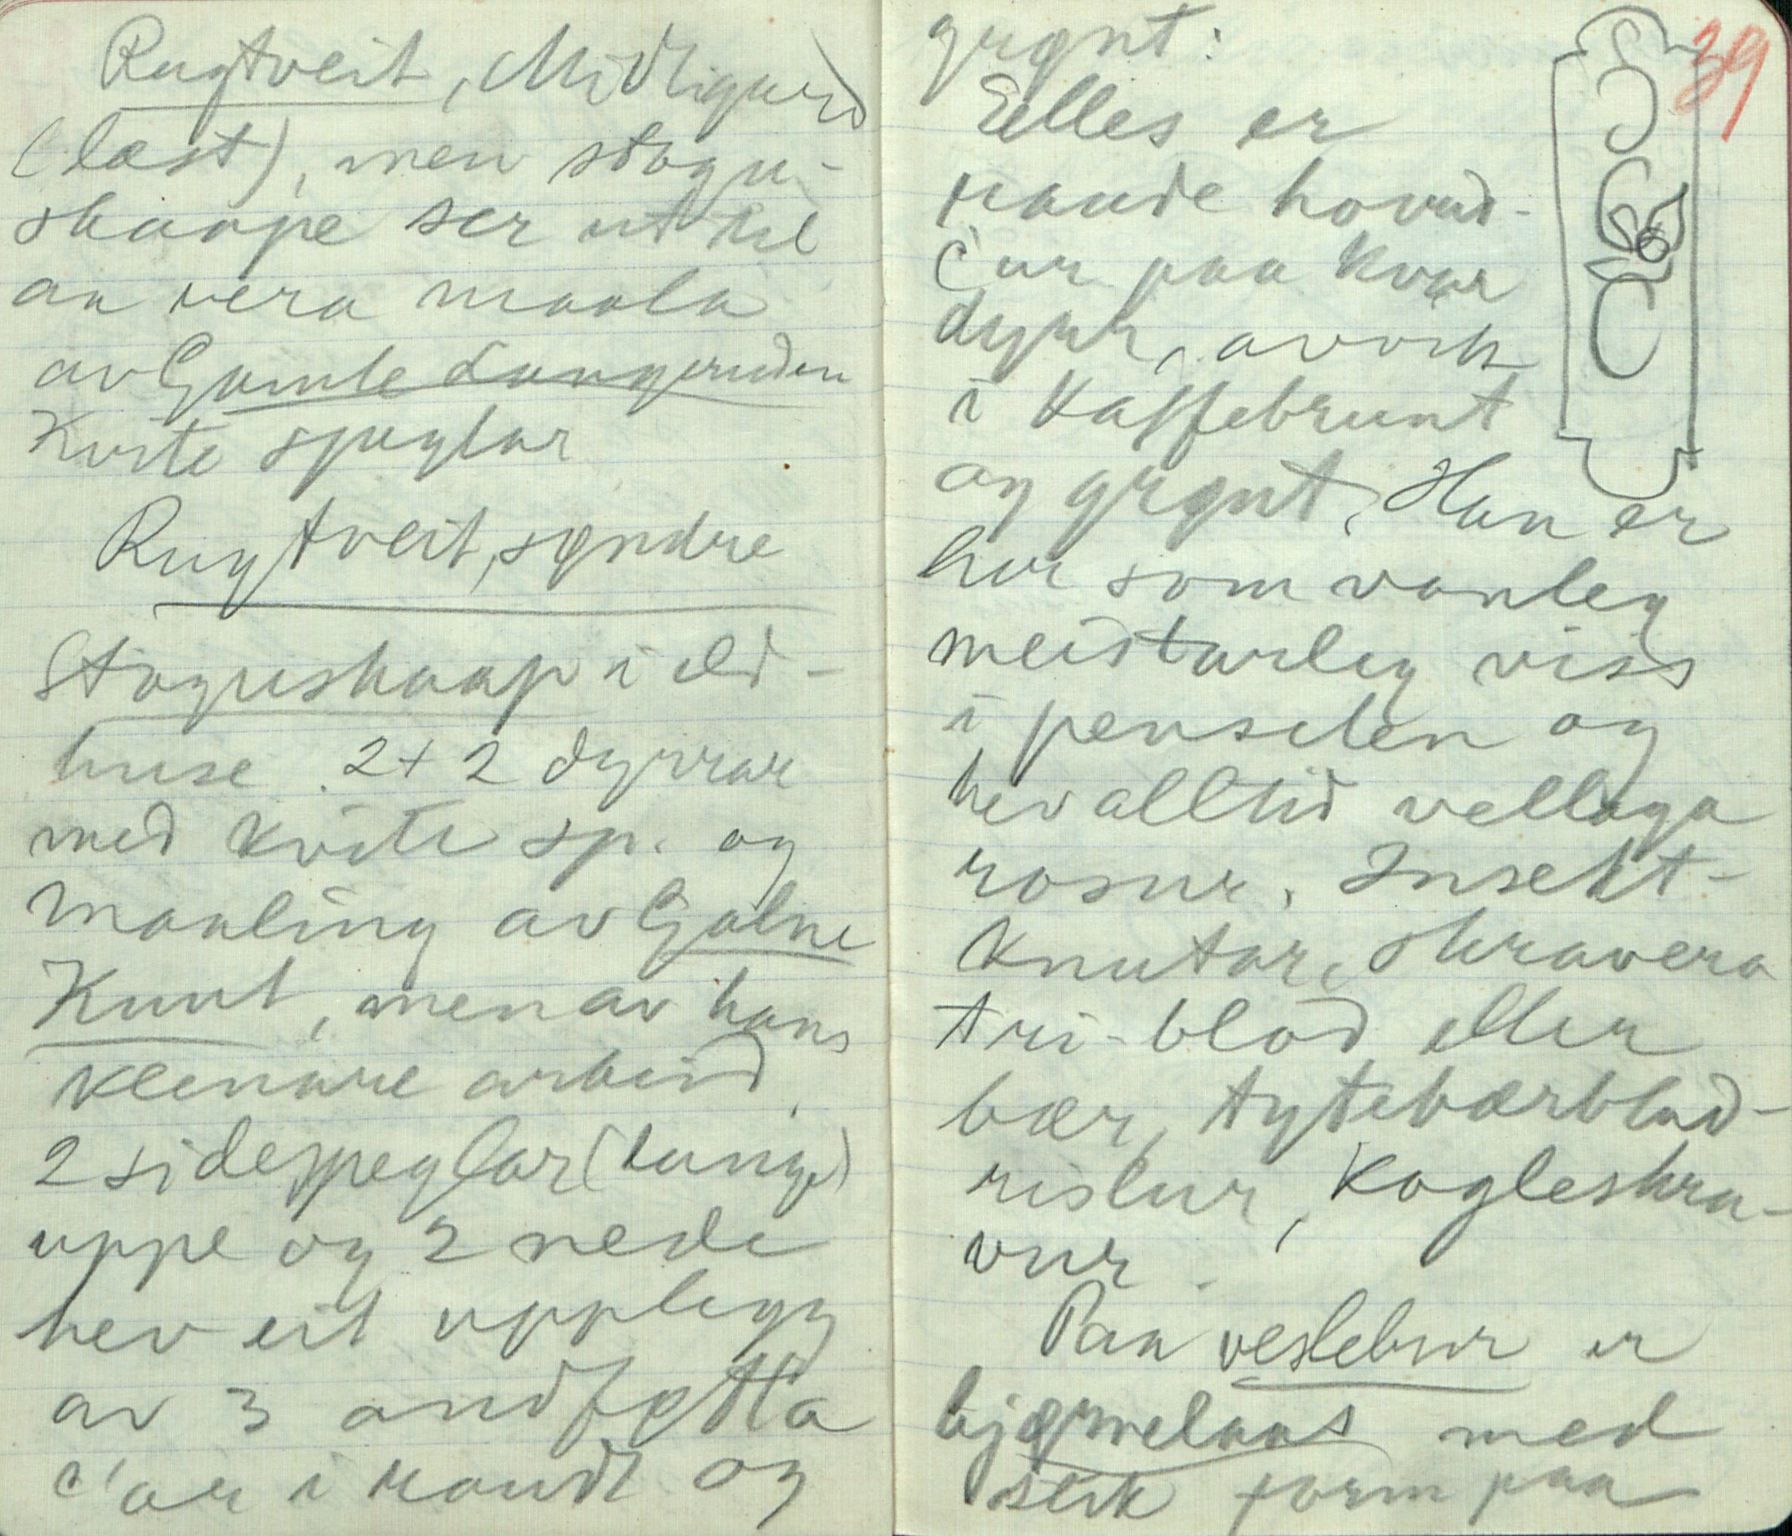 Rugtveit, Midtigard
(læst), men stogu-
skaape ser ut til
aa vera maala
av Gamle Lungeruden
Kvite speglar
Rugtveit, syndre
Stoguskaap i eld-
huse. 2+2 dyrrar
med kvite sp. og
maaling av Galne
Knut, men av hans
kleinare arbeid.
2 sidespeglar (lange)
uppe og 2 nede
hev eit upplegg
av 3 andføtta
c'ar i raudt og
39
grønt:
Elles er
raude hovud-
c'ur paa kvar
dyrr, avvik
i Kaffebrunt
og grønt. Han er
her som vanleg
meistarleg viss
i penselen og
hev alltid vellaga
rosur. Insekt-
knutar, skravera
tri-blad eller
bær, tytebærblad-
rislur, Kogleskra-
vur.
Paa veslebur er
bjørnelaas med
slik form paa